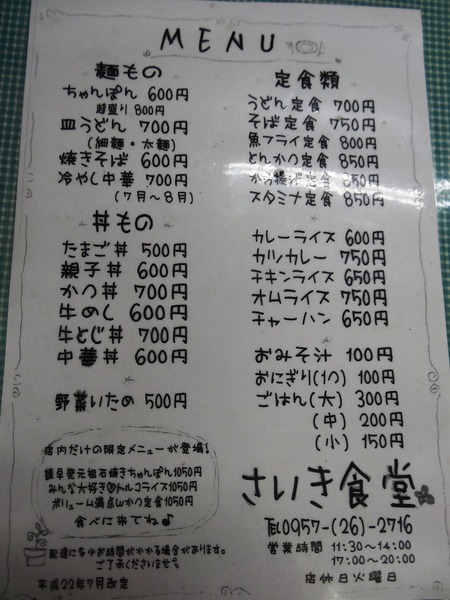 MENU
麺もの
ちゃんぽん 600円
超盛り 800円
皿うどん 700円
(細麺・太麺)
焼きそば 600円
冷やし中華 700円
(7月〜8月)
丼もの
たまご丼 500円
親子丼 600円
かつ丼 700円
牛めし 600円
牛とじ丼 700円
中華丼 600円
野菜いため 500円
店内だけの限定メニューが登場!
諫早発元祖石焼きちゃんぽん1050円
みんな大好き♡トルコライス1050円
ボリューム満点Wかつ定食1050円
食べに来てね♪
配達に多少お時間がかかる場合があります。
ご了承くださいませ。
平成22年7月改定
定食類
うどん定食 700円
そば定食 750円
魚フライ定食 800円
とんかつ定食 850円
から揚げ定食 850円
スタミナ定食 850円
カレーライス 600円
カツカレー 750円
チキンライス 650円
オムライス 750円
チャーハン 650円
おみそ汁 100円
おにぎり(1つ) 100円
ごはん(大) 300円
(中) 200円
(小) 150円
さいき食堂
TEL0957-(26)-2716
営業時間 11:30〜14:00
17:00〜20:00
店休日火曜日